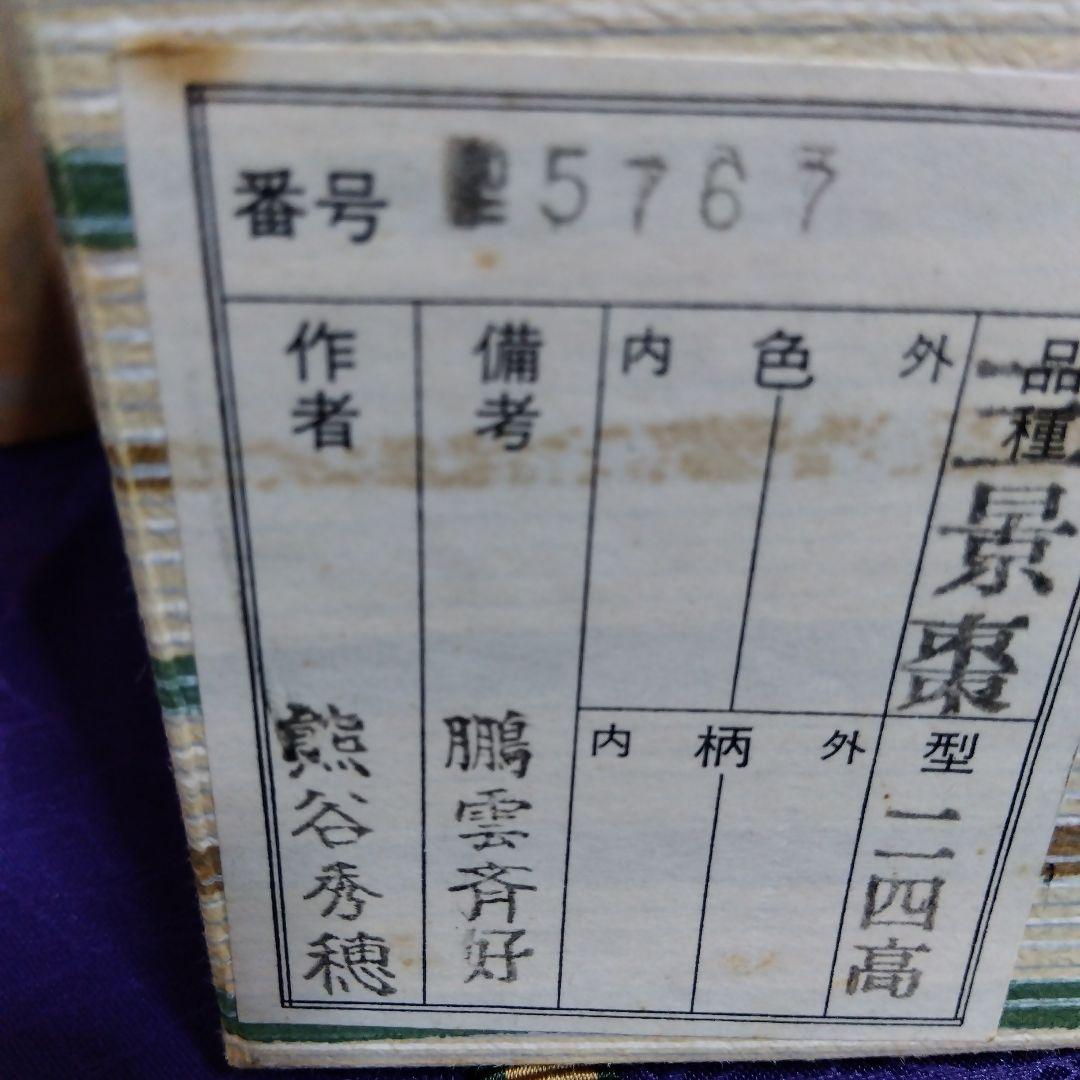 番号 5767
品種 三景棗
型 二四高
外 色 内
外 柄 内
備考 鵬雲斉好
作者 熊谷秀穂